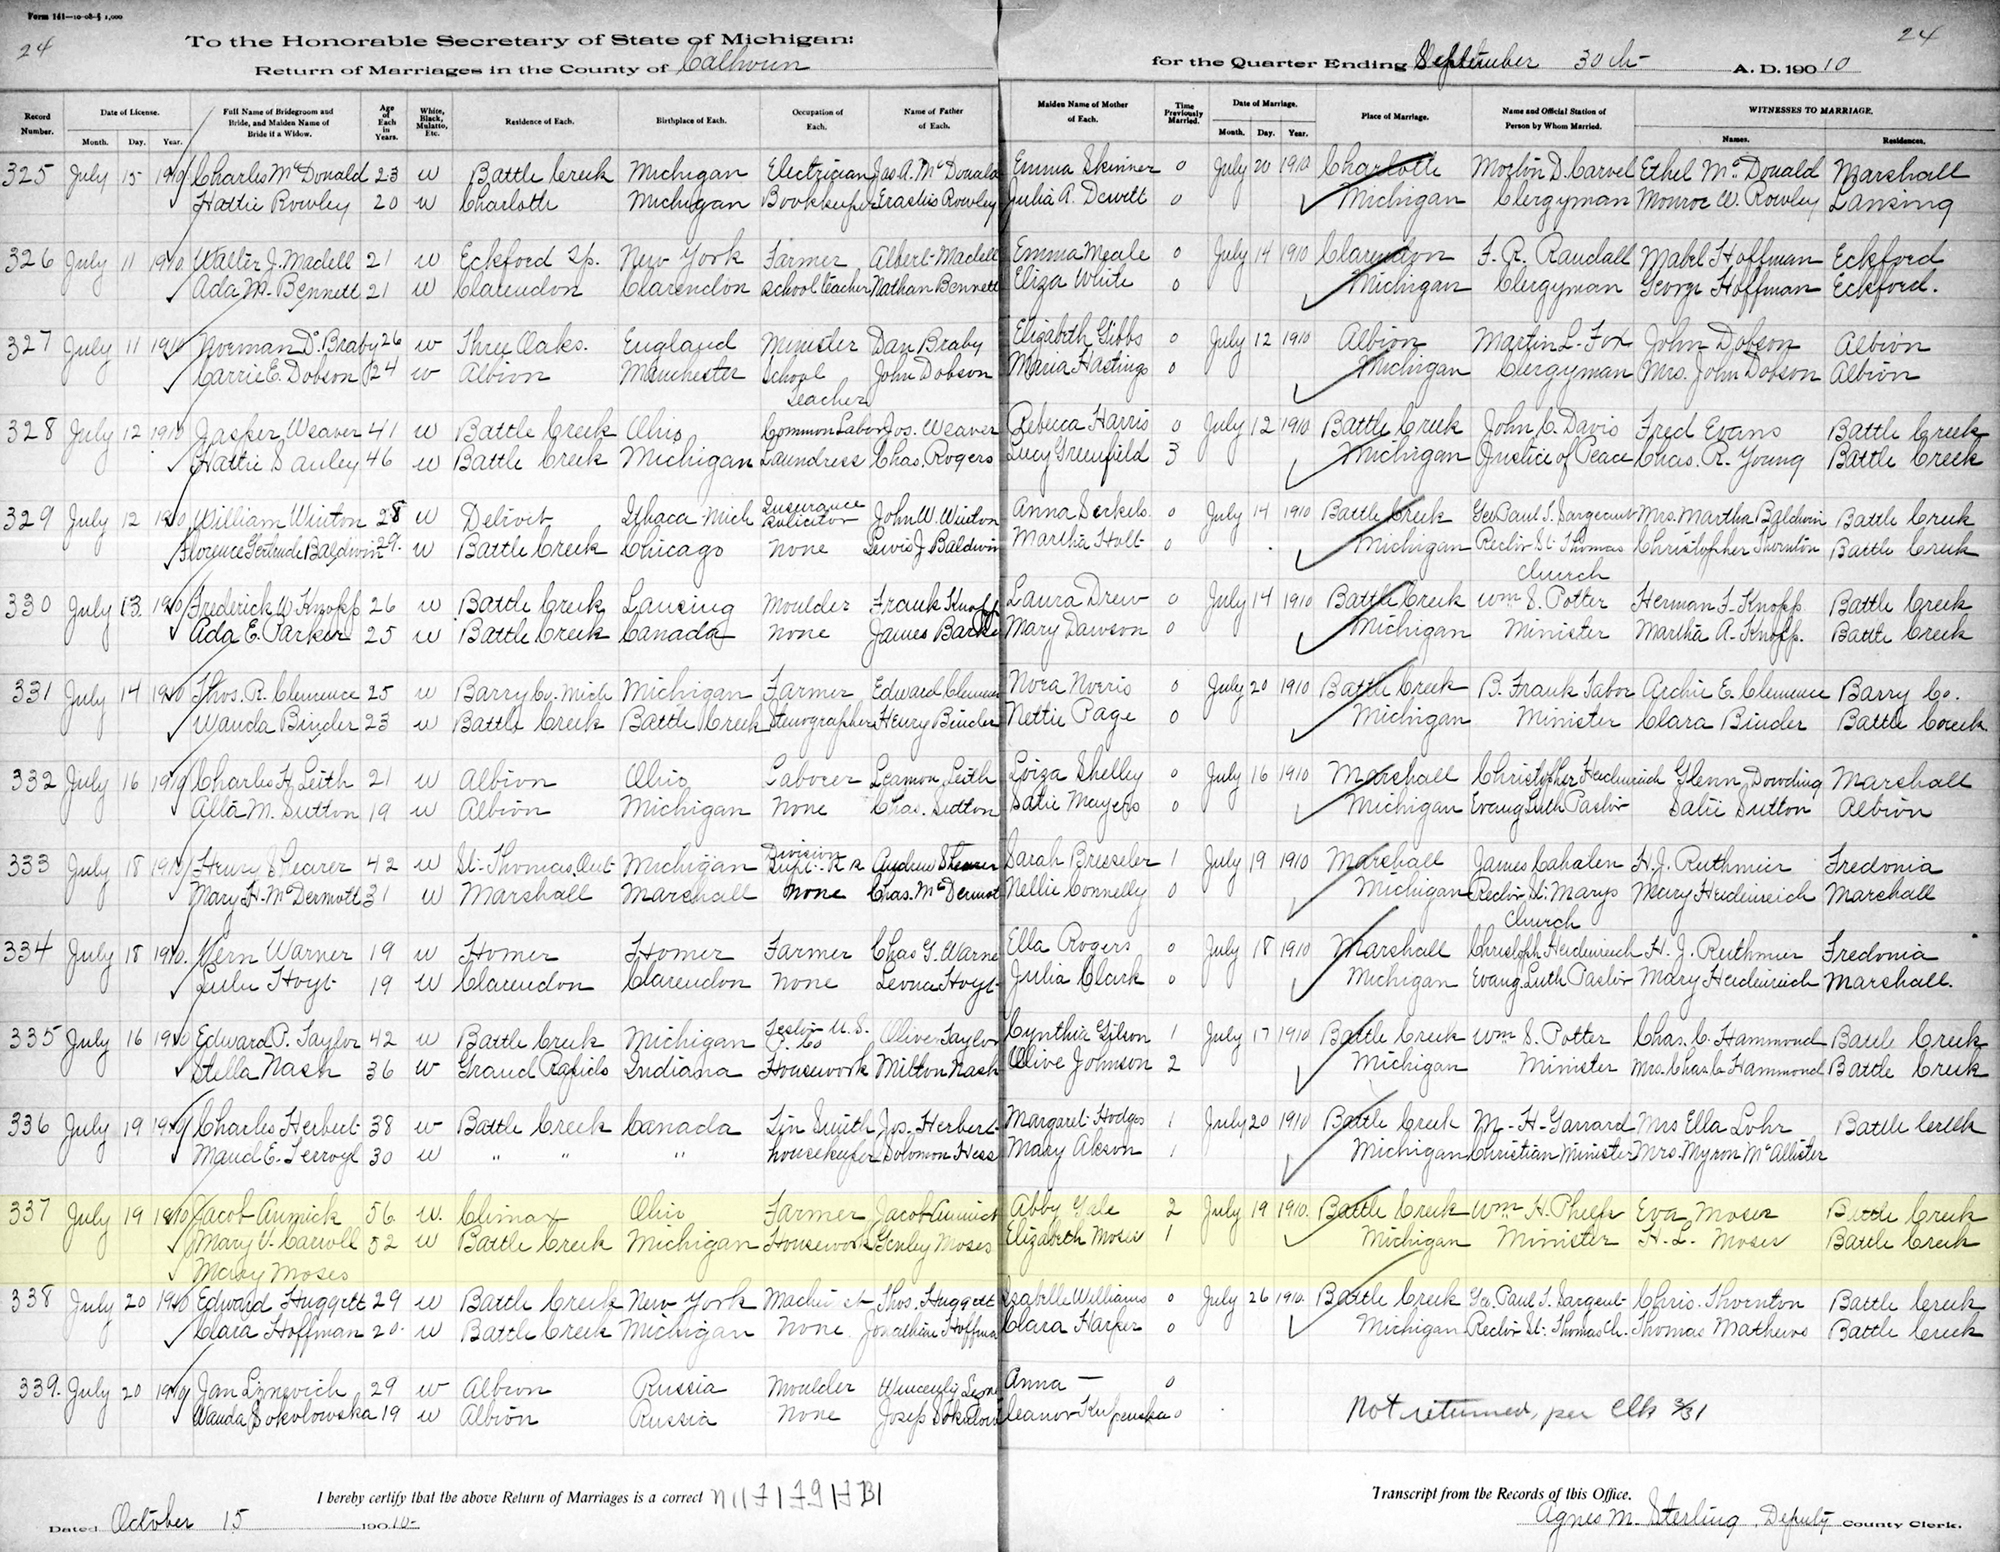 Form 141—10-08-§ 1,000
24
24
To the Honorable Secretary of State of Michigan:
Return of Marriages in the County of Calhoun for the Quarter Ending September 30th A. D. 190 10
Record Number. Date of License. Month. Day. Year. Full Name of Bridegroom and Bride, and Maiden Name of Bride if a Widow. Age of Each in Years. White, Black, Mulatto, Etc. Residence of Each. Birthplace of Each. Occupation of Each. Name of Father of Each. Maiden Name of Mother of Each. Time Previously Married. Date of Marriage. Month. Day. Year. Place of Marriage. Name and Official Station of Person by Whom Married. WITNESSES TO MARRIAGE. Names. Residences.
325 July 15 1910 Charles McDonald 23 W Battle Creek Michigan Electrician Jas A. McDonald Emma Skinner 0 July 20 1910 Charlotte D. Carvel Ethel McDonald Marshall
Hattie Rowley 20 W Charlotte Michigan Bookkeeper Erastus Rowley Julia A. Dewitt 0 Michigan Clergyman Monroe W. Rowley Lansing
326 July 11 1910 Walter J. Madell 21 W Eckford Tp. New York Farmer Albert Madell Emma Meale 0 July 14 1910 Clarendon F. R. Randall Mabel Hoffman Eckford
Ada M. Bennett 21 W Clarendon Clarendon School teacher Nathan Bennett Eliza White 0 Michigan Clergyman George Hoffman Eckford.
327 July 11 1910 Norman D. Braby 26 W Three Oaks. England Minister Dan Braby Elizabeth Gibbs 0 July 12 1910 Albion Martin L. Fox John Dobson Albion
Carrie E. Dobson 24 W Albion Manchester School John Dobson Maria Hastings 0 Michigan Clergyman Mrs. John Dobson Albion
teacher
328 July 12 1910 Jasper Weaver 41 W Battle Creek Ohio Common Labor Jos. Weaver Rebecca Harris 0 July 12 1910 Battle Creek John C. Davis Fred Evans Battle Creek
Hattie Sauley 46 W Battle Creek Michigan Laundress Chas. Rogers Lucy Greenfield 3 Michigan Justice of Peace Chas. R. Young Battle Creek
329 July 12 1910 William Winton 28 W Detroit Ithaca Mich Insurance Solicitor John W. Winton Anna Serkels 0 July 14 1910 Battle Creek Geo Paul T. Sargeant Mrs. Martha Baldwin Battle Creek
Florence Gertrude Baldwin 29. W Battle Creek Chicago None Lewis J Baldwin Martha Holt 0 Michigan Rector St. Thomas Christopher Thornton Battle Creek
Church
330 July 13. 1910 Frederick W. Knopp 26 W Battle Creek Lansing Moulder Frank Knopp Laura Drew 0 July 14 1910 Battle Creek Wm S. Potter Herman F. Knopp Battle Creek
Ada E. Parker 25 W Battle Creek Canada None James Mary Dawson 0 Michigan Minister Martha A. Knopp. Battle Creek
331 July 14 1910 Thos. R. Clemence 25 W Barry Co. Mich Michigan Farmer Edward Clemence Nora Norris 0 July 20 1910 Battle Creek B. Frank Tabor Archie E. Clemence Barry Co.
Wanda Binder 23 W Battle Creek Battle Creek Stenographer Henry Binder Nettie Page 0 Michigan Minister Clara Binder Battle Creek
332 July 16 1910 Charles H. Leith 21 W Albion Ohio Laborer Leamon Leith Loiza Shelley 0 July 16 1910 Marshall Christopher Heidenreich Glenn Dowding Marshall
Alta M. Sutton 19 W Albion Michigan None Chas. Sutton Satie Mayers 0 Michigan Evang Luth Pastor Satie Sutton Albion
333 July 18 1910 Henry Shearer 42 W St. Thomas Ont Michigan Division Supt. R R Andrew Shearer Sarah Bresseler 1 July 19 1910 Marshall James Cahalen H. J. Ruthmier Fredonia
Mary H. McDermott 31 W Marshall Marshall None Chas. McDermot Nellie Connelly 0 Michigan Rector St. Marys Mary Heidenreich Marshall
Church
334 July 18 1910. Vern Warner 19 W Homer Homer Farmer Chas G. Warne Ella Rogers 0 July 18 1910 Marshall Christoph Heidenreich H. J. Ruthmier Fredonia
Lulu Hoyt 19 W Clarendon Clarendon None Hoyt Julia Clark 0 Michigan Evang. Luth Pastor Mary Heidenreich Marshall.
335 July 16 1910 Edward P. Taylor 42 W Battle Creek Michigan Testor U. S. P. Co Oliver Taylor Cynthia Gilson 1 July 17 1910 Battle Creek Wm S. Potter Chas. C. Hammond Battle Creek
Stella Nash 36 W Grand Rapids Indiana Housework Milton Nash Olive Johnson 2 Michigan Minister Mrs. Chas C Hammond Battle Creek
336 July 19 1910 Charles Herbert 38 W Battle Creek Canada Tin Smith Jos. Herbert Margaret Hodges 1 July 20 1910 Battle Creek M. H. Garrard Mrs Ella Lohr Battle Creek
Maud E. 30 W " " " Housekeeper Solomon Hess Mary 1 Michigan Christian Minister Mrs. Myron McAllister
337 July 19 1910 Jacob Aumick 56. W. Climax Ohio Farmer Jacob Aumick Abby Gale 2 July 19 1910. Battle Creek Wm H. Phelps Eva Moses Battle Creek
Mary V. Carroll 52 W Battle Creek Michigan Housework Moses Elizabeth Moses 1 Michigan Minister H. L. Moses Battle Creek
Mary Moses
338 July 20 1910 Edward Huggett 29 W Battle Creek New York Machinist Thos. Huggett Isabelle Williams 0 July 26 1910. Battle Creek Geo. Paul T. Sargent Chris. Thornton Battle Creek
Clara Hoffman 20 W Battle Creek Michigan None Jonathan Hoffman Clara Harper 0 Michigan Rector St. Thomas Ch. Thomas Mathews Battle Creek
339. July 20 1910 Jan Liznevich 29 W Albion Russia Moulder Anna — 0
Wanda Sokolowska 19 W Albion Russia None Josep 0 Not returned, per Clk 3/31
I hereby certify that the above Return of Marriages is a correct Transcript from the Records of this Office.
Dated October 15 190 10 Agnes M. Sterling, Deputy County Clerk.